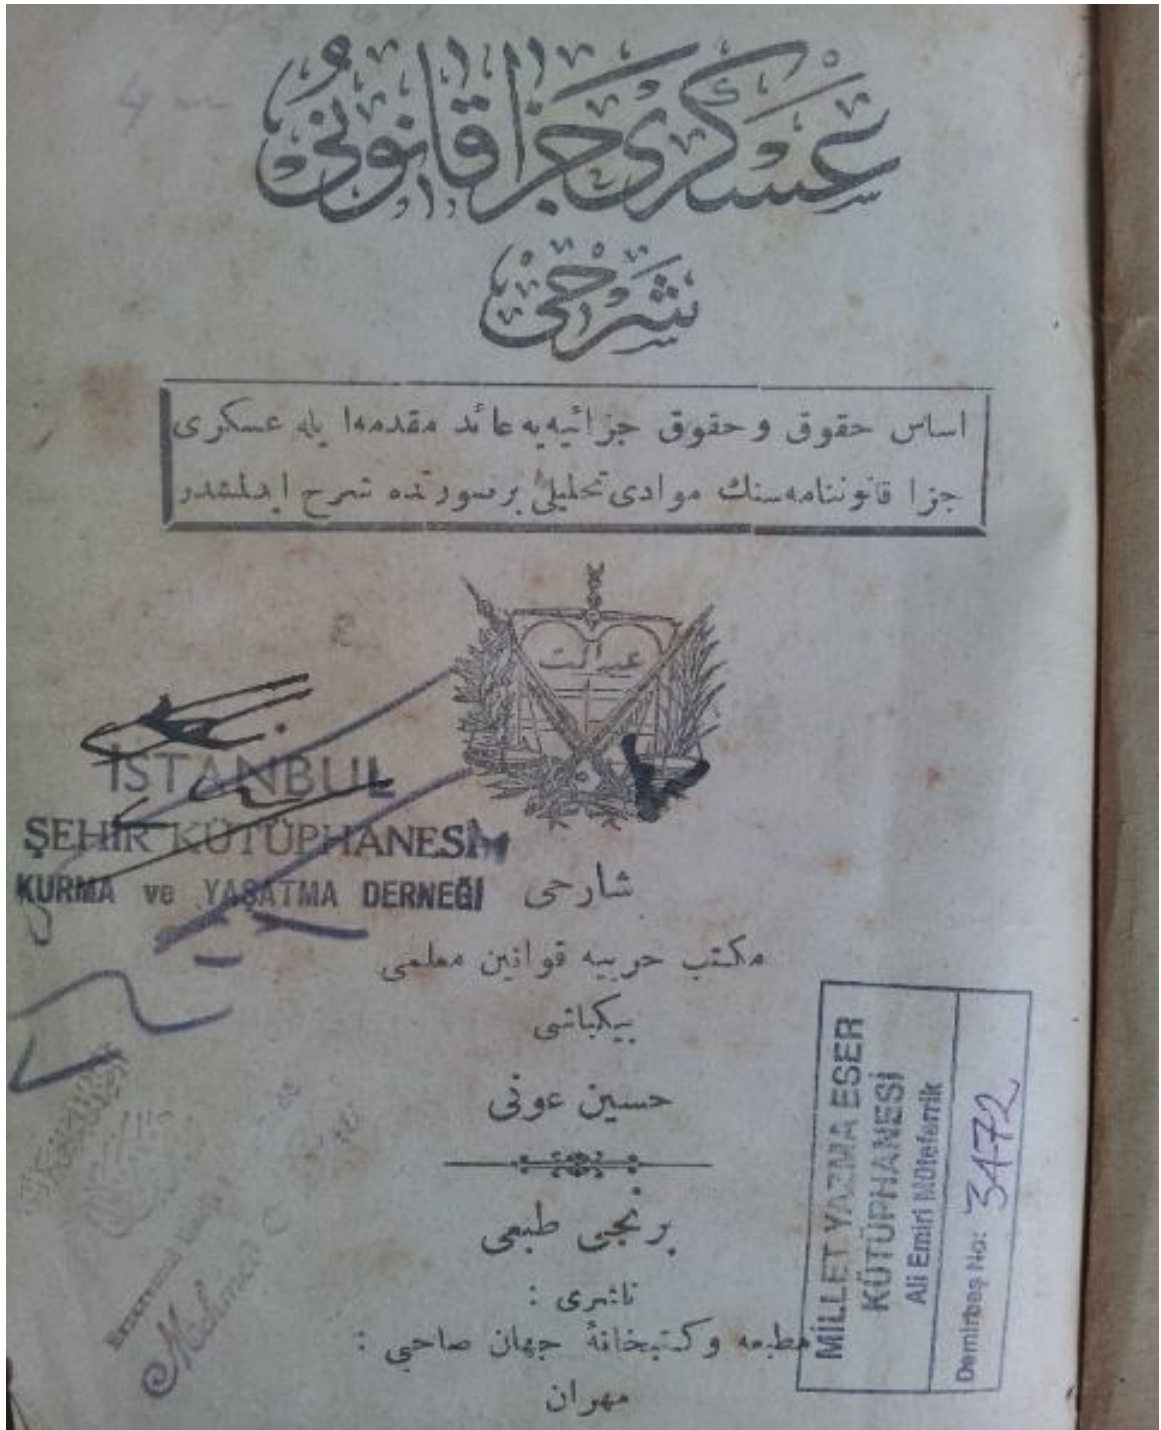 عسكرى جزا قانونى
شرحى
اساس حقوق و حقوق جزائيه‌يه عائد مقدمه ايله عسكرى
جزا قانوننامه‌سنك موادى تحليلى بر صورتده شرح ايدلمشدر
عدالت
İSTANBUL
ŞEHİR KÜTÜPHANESİ
KURMA ve YAŞATMA DERNEĞİ
شارحى
مكتب حربيه قوانين معلمى
بيكباشى
حسين عونى
برنجى طبعى
ناشرى :
مطبعه و كتبخانهٔ جهان صاحبى :
مهران
MİLLET YAZMA ESER
KÜTÜPHANESİ
Ali Emiri Müteferrik
Demirbaş No: 3472